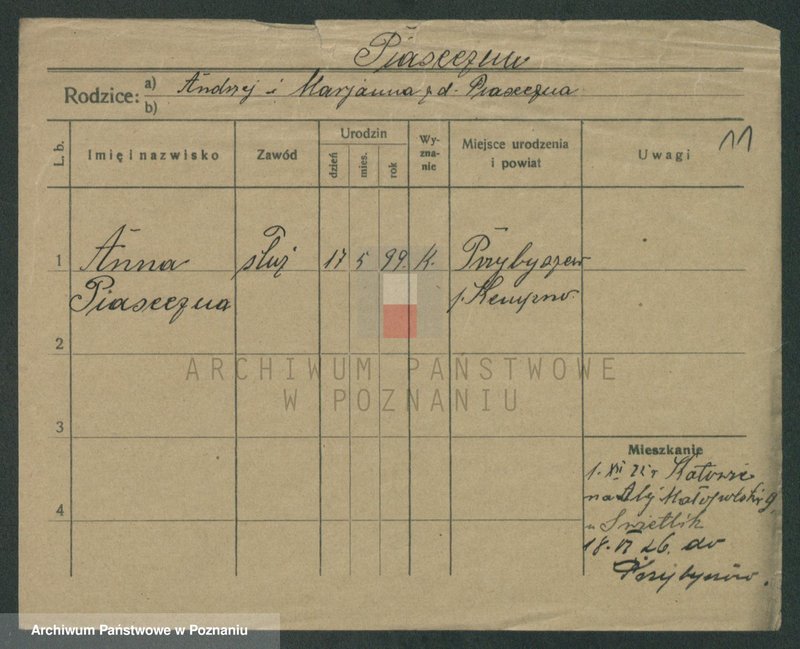 Piaseczna
Rodzice: a) Andrzej i Marjanna z d. Piaseczna
b)
L. b. Imię i nazwisko Zawód Urodzin dzień mies. rok Wyznanie Miejsce urodzenia i powiat Uwagi 11
1 Anna służ 17 5 99. K. Przybyszew
Piaseczna p. Kempno
2
ARCHIWUM PAŃSTWOWE
W POZNANIU
3
Mieszkanie
1. XII
na
4
u Swietlik
18. VI 26. do
Przybyszów.
Archiwum Państwowe w Poznaniu